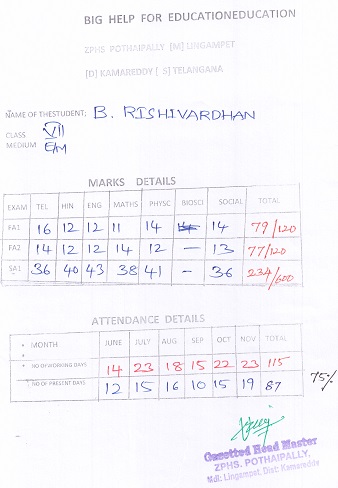 BIG HELP FOR EDUCATIONEDUCATION
ZPHS POTHAIPALLY [M] LINGAMPET
[D] KAMAREDDY [ S] TELANGANA
NAME OF THESTUDENT: B. RISHIVARDHAN
CLASS VII
MEDIUM E/M
MARKS DETAILS
EXAM TEL HIN ENG MATHS PHYSC BIOSCI SOCIAL TOTAL
FA1 16 12 12 11 14 14 79/120
FA2 14 12 12 14 12 - 13 77/120
SA1 36 40 43 38 41 - 36 234/600
ATTENDANCE DETAILS
MONTH JUNE JULY AUG SEP OCT NOV TOTAL
NO OF WORKING DAYS 14 23 18 15 22 23 115
NO OF PRESENT DAYS 12 15 16 10 15 19 87 75%
Gazetted Head Master
ZPHS. POTHAIPALLY,
Mdl: Lingampet, Dist: Kamareddy